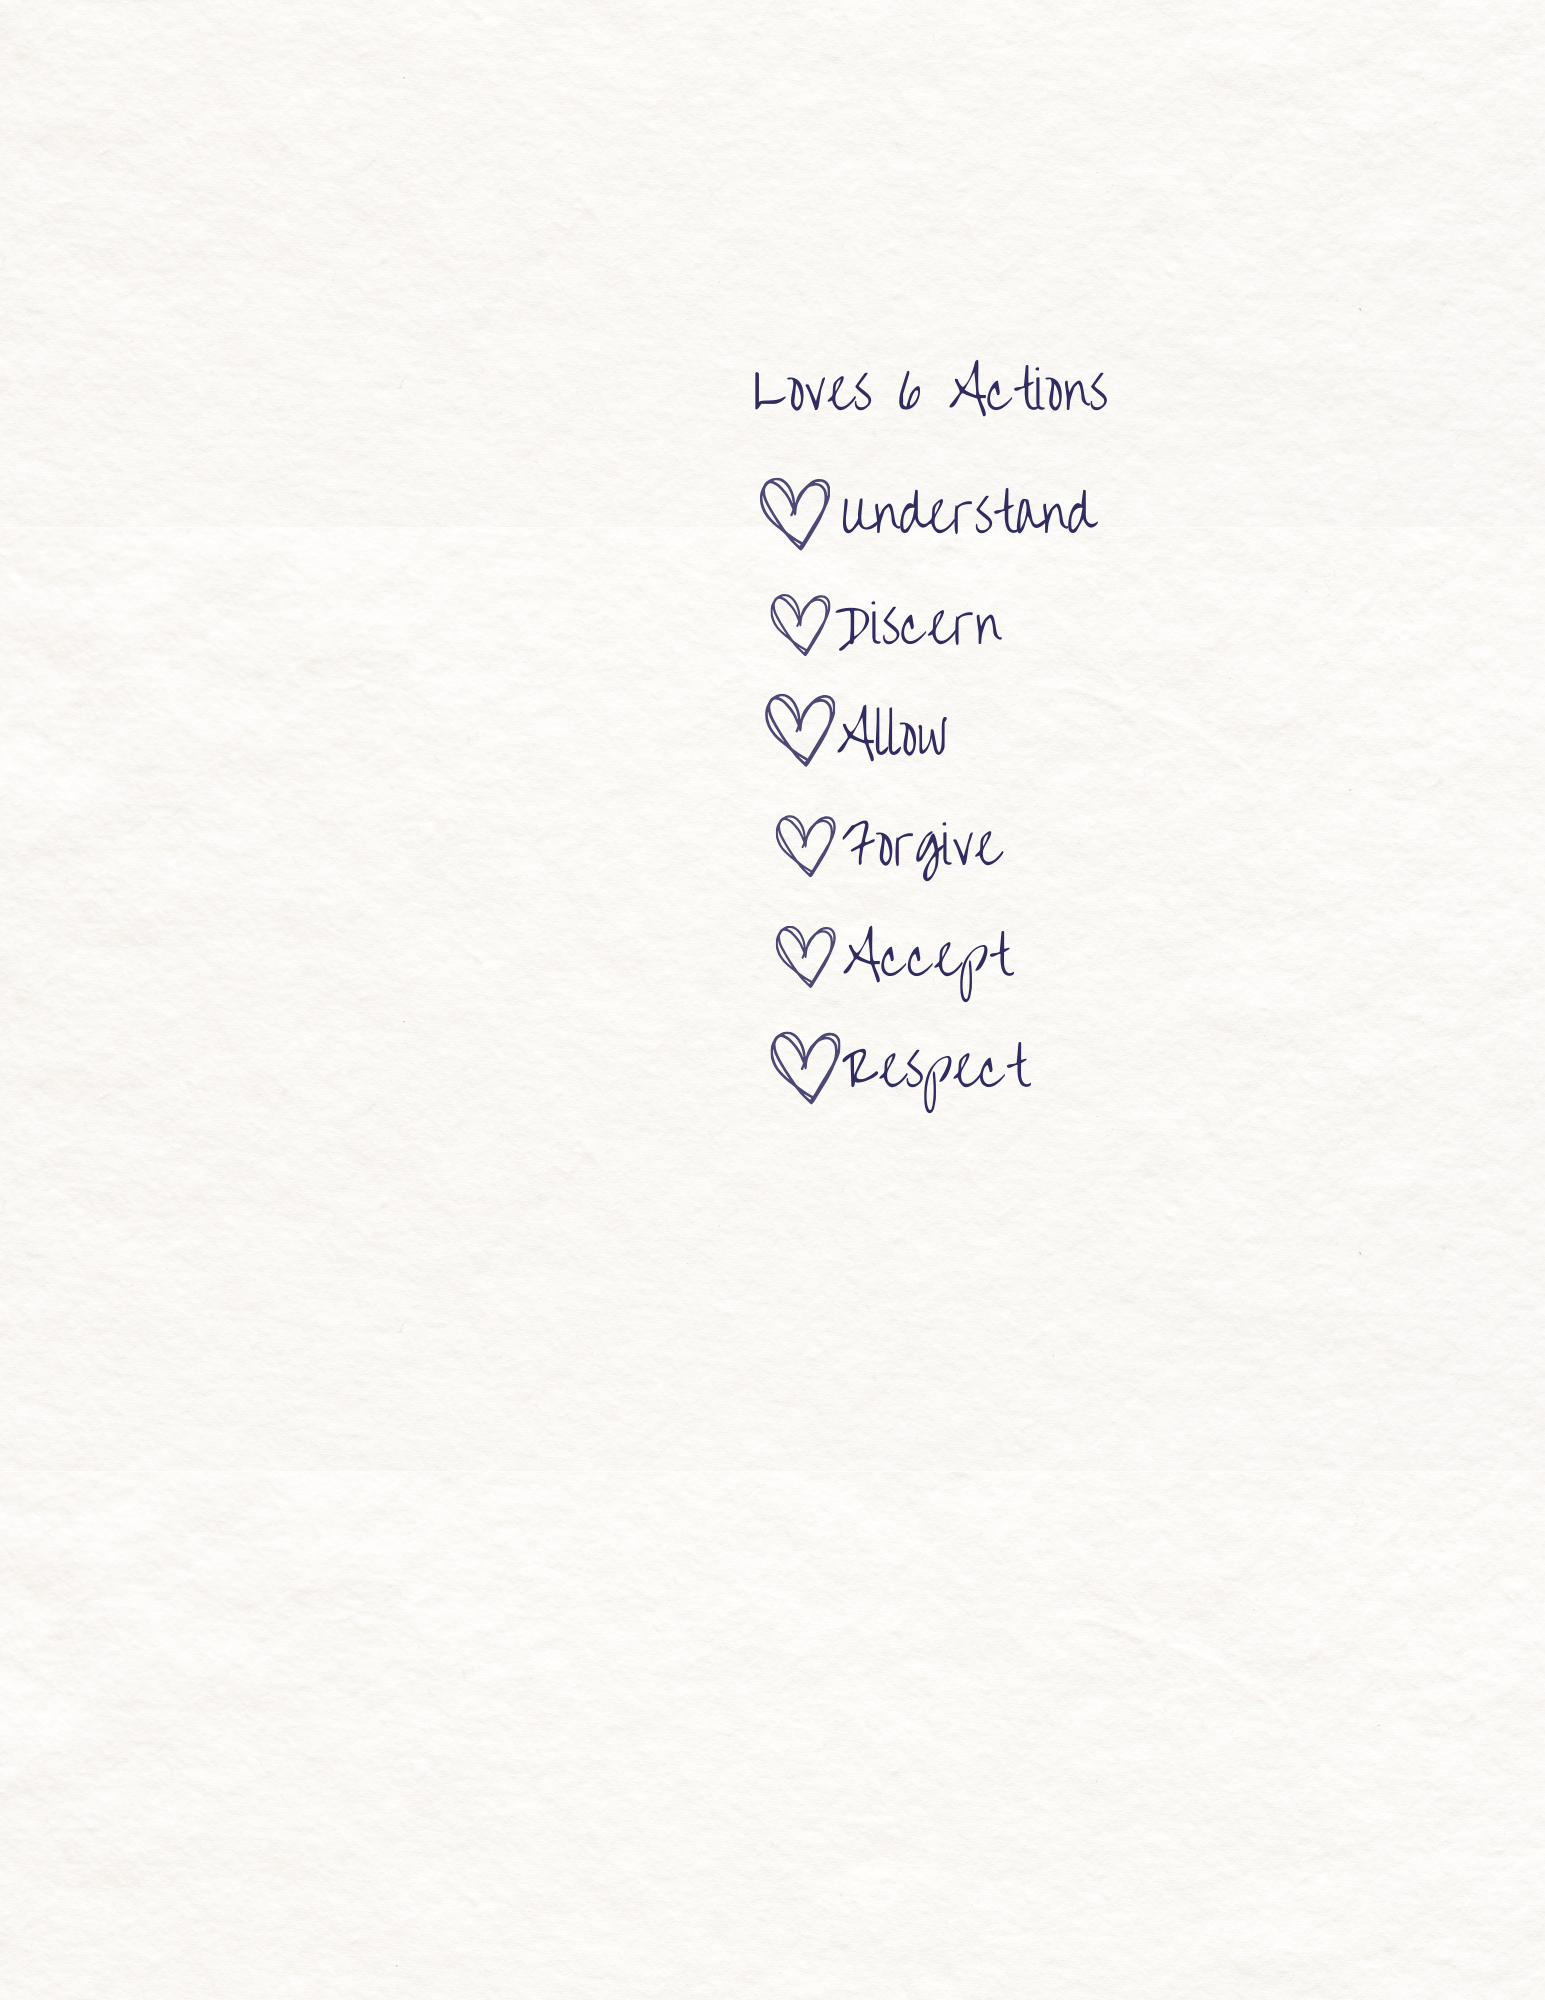 Loves 6 Actions
Understand
Discern
Allow
Forgive
Accept
Respect